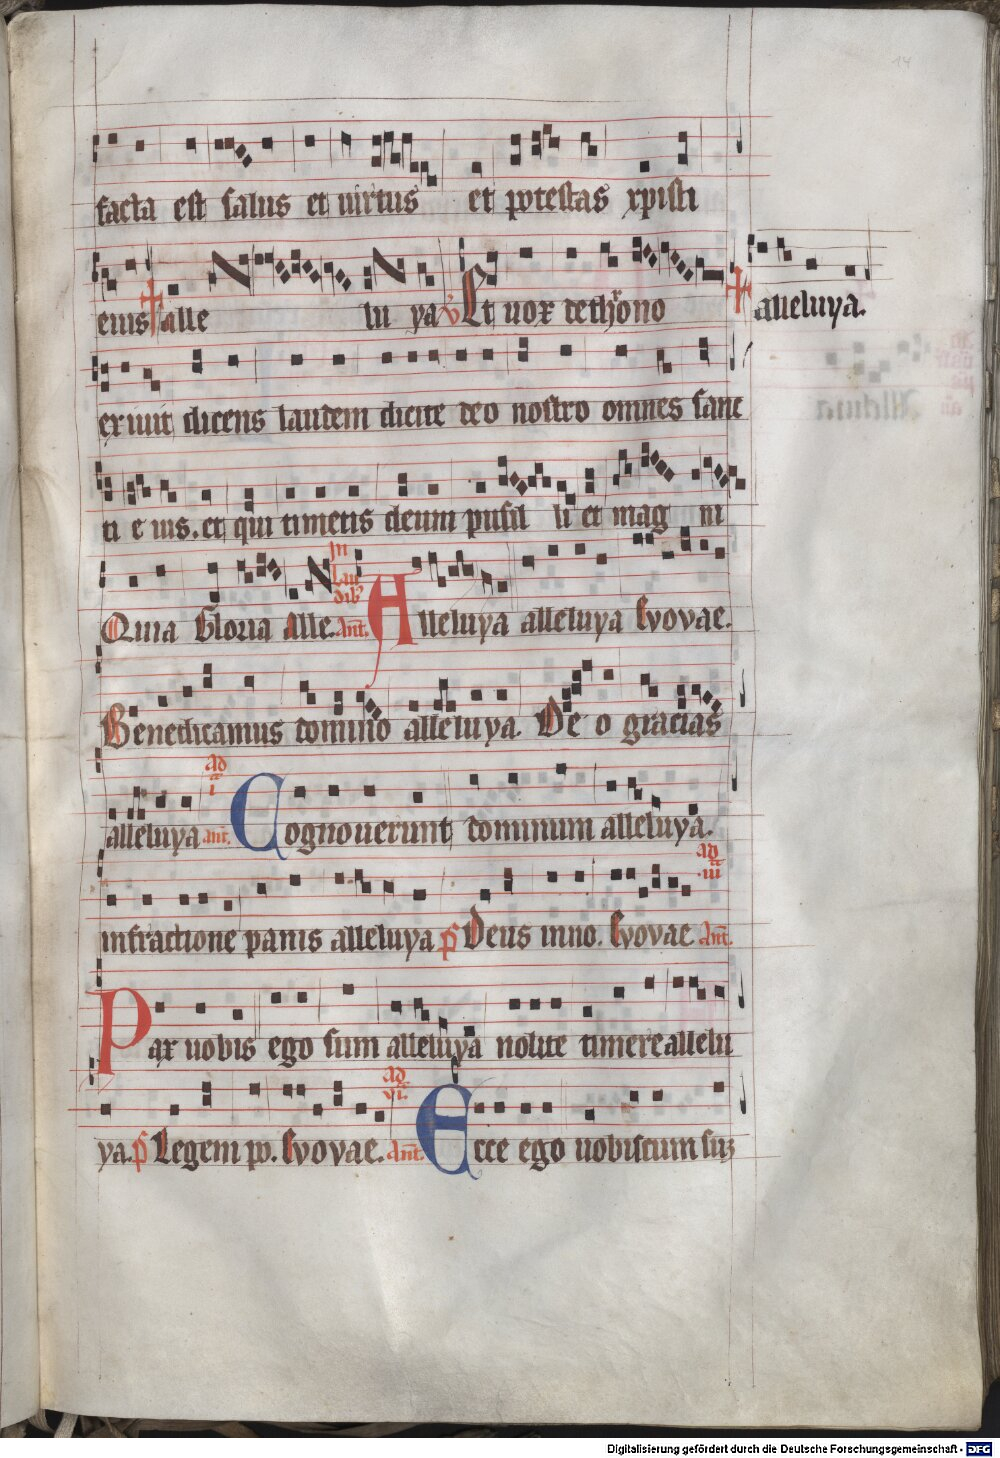 14
facta est salus et uirtus et potestas xpisti
eius alle lu ya v Et uox de throno alleluya.
exiuit dicens laudem dicite deo nostro omnes sanc
ti e ius. et qui timetis deum pusil li et mag ni
Quia Gloria Alle. In lau dib⁹ Ant. Alleluya alleluya Evovae.
Benedicamus domino alleluya. De o gracias
alleluya ad i ant. Cognouerunt dominum alleluya.
infractione panis alleluya ps Deus inno. Evovae ad iii Ant.
Pax uobis ego sum alleluya nolite timere allelu
ya. ps Legem po. Evovae. ad vi. Ant. Ecce ego uobiscum sūz
Digitalisierung gefördert durch die Deutsche Forschungsgemeinschaft - DFG